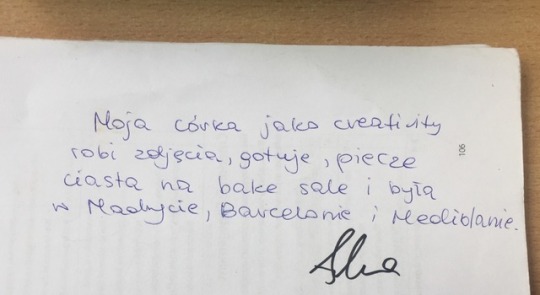 Moja córka jako creativity
robi zdjęcia, gotuje, piecze
ciasta na bake sale i była
w Madrycie, Barcelonie i Mediolanie.
106